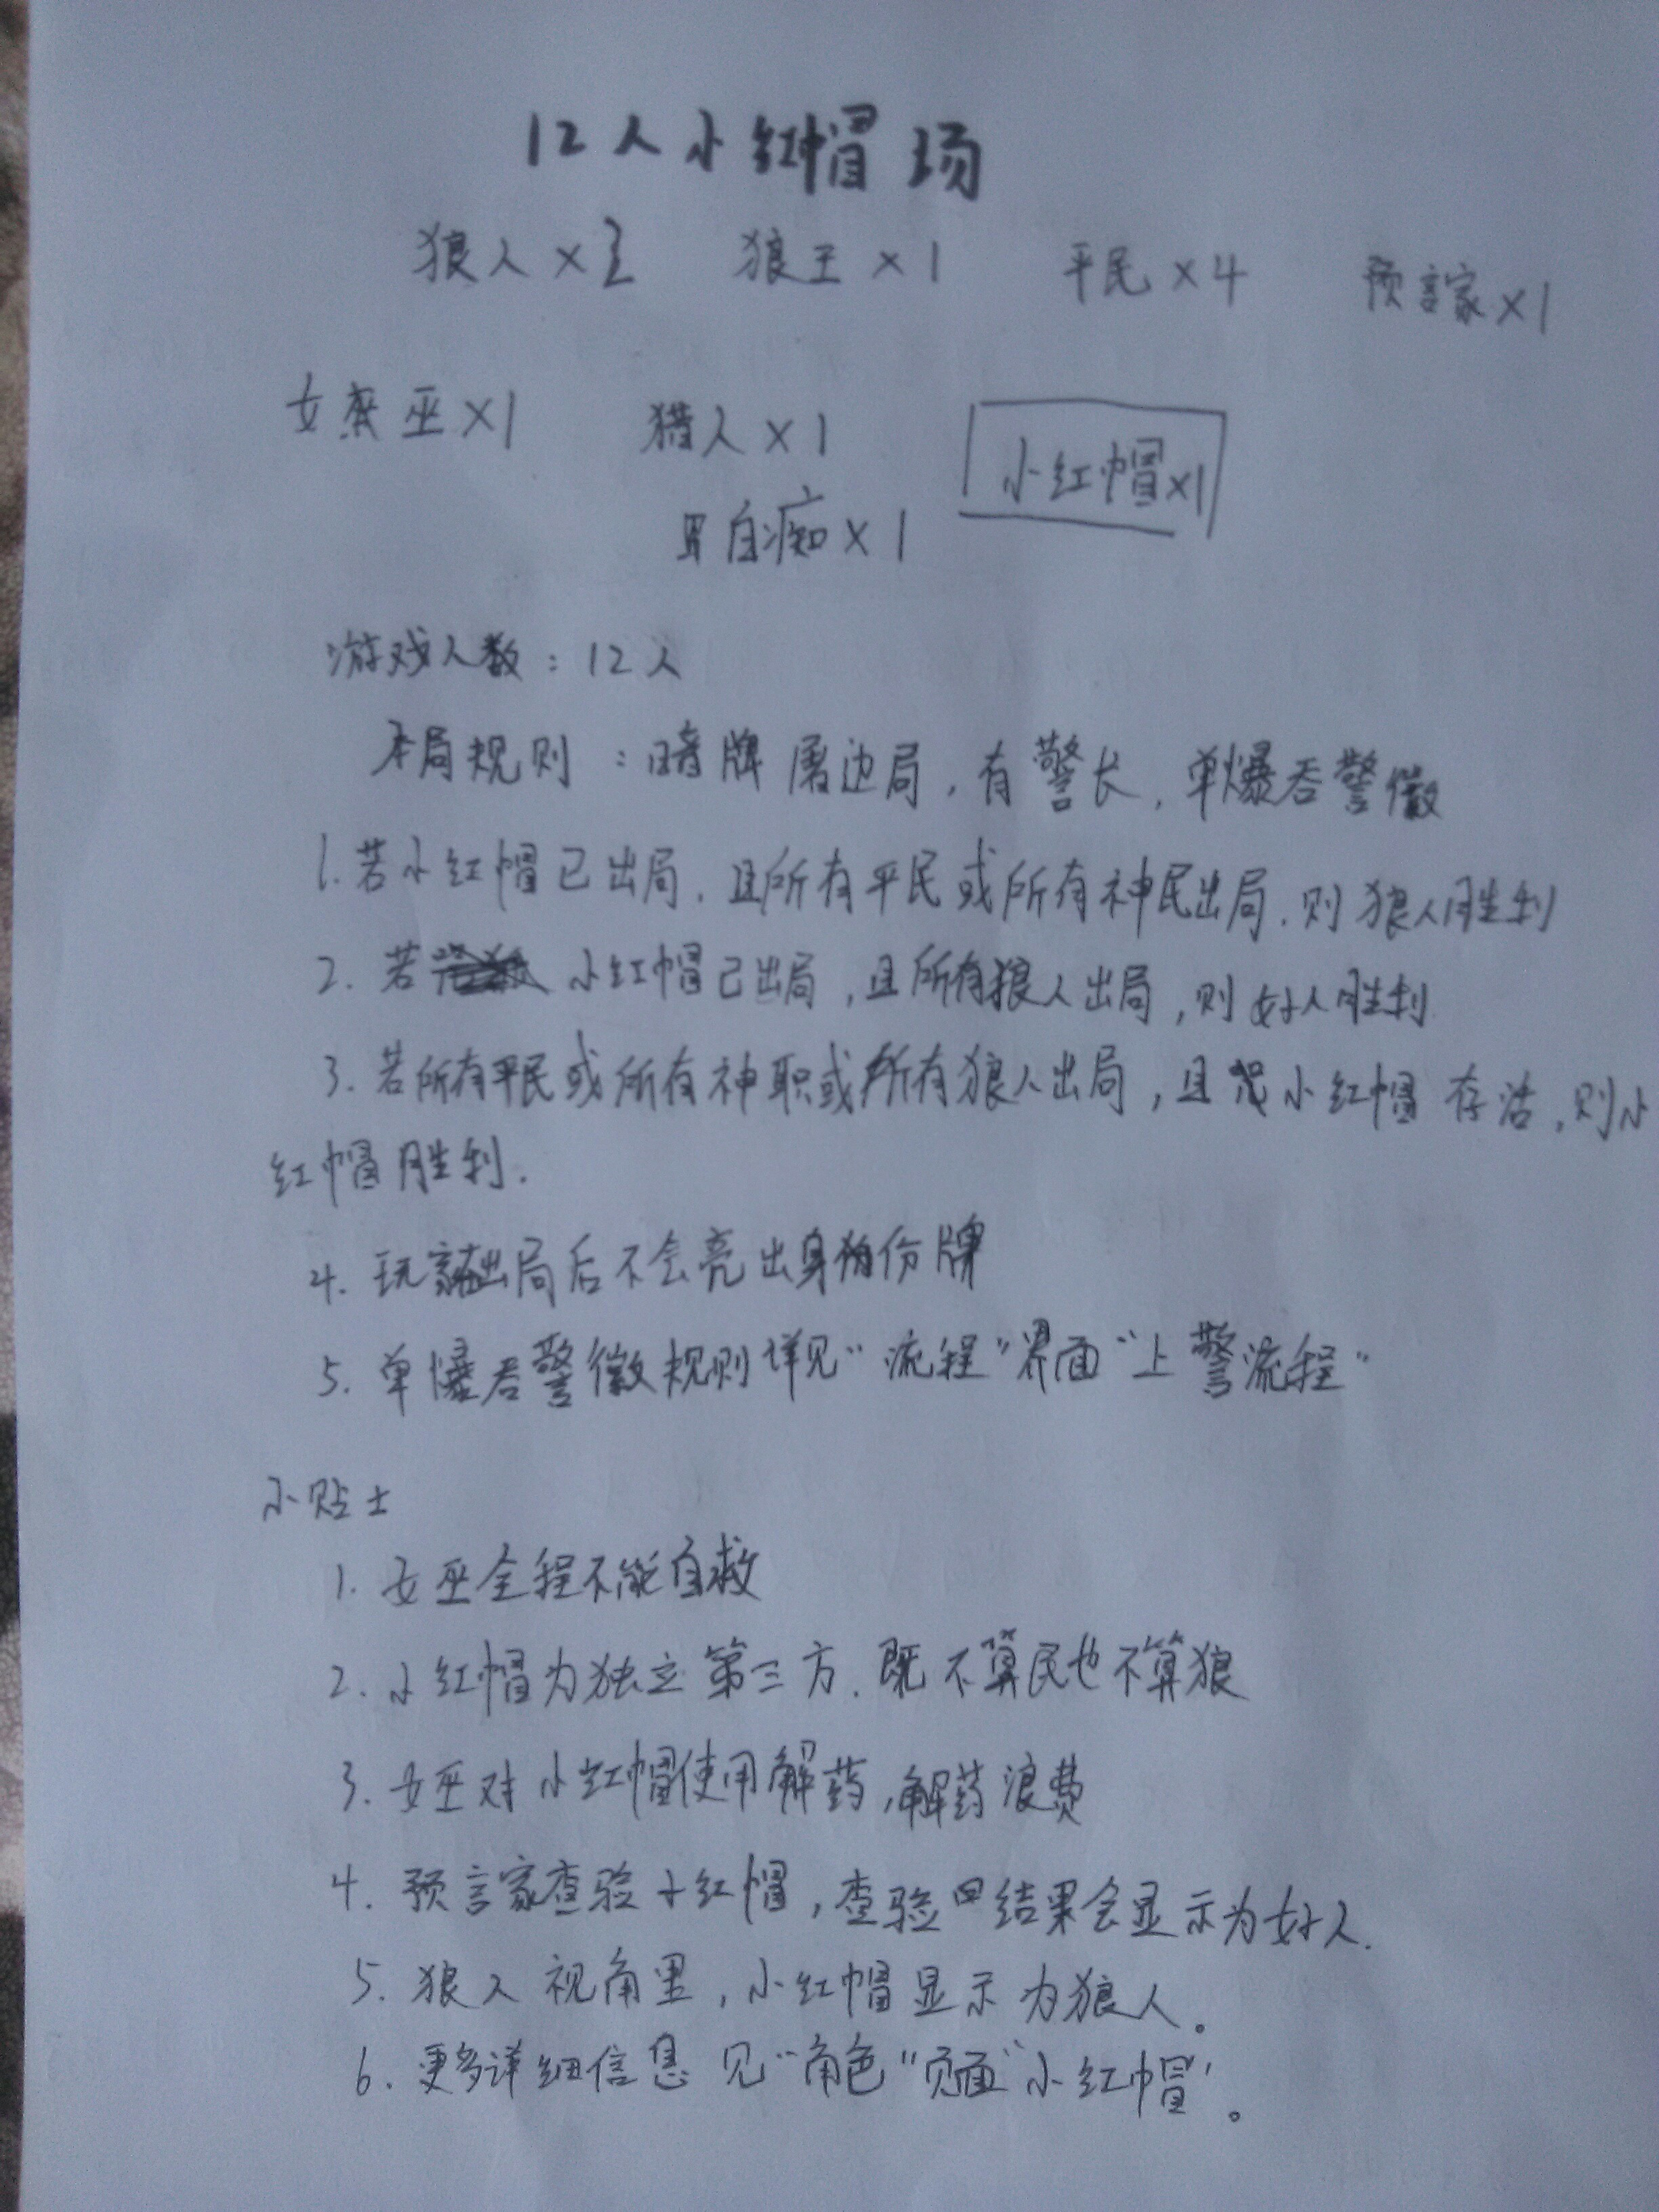 12人小红帽场
狼人×2 狼王×1 平民×4 预言家×1
女巫×1 猎人×1 小红帽×1
白痴×1
游戏人数：12人
本局规则：暗牌屠边局，有警长，单爆吞警徽
1.若小红帽已出局，且所有平民或所有神民出局，则狼人胜利
2.若小红帽已出局，且所有狼人出局，则好人胜利
3.若所有平民或所有神职或所有狼人出局，且小红帽存活，则小
红帽胜利.
4.玩家出局后不会亮出身份牌
5.单爆吞警徽规则详见“流程”界面“上警流程”
小贴士
1.女巫全程不能自救
2.小红帽为独立第三方，既不算民也不算狼
3.女巫对小红帽使用解药，解药浪费
4.预言家查验小红帽，查验结果会显示为好人.
5.狼人视角里，小红帽显示为狼人。
6.更多详细信息见“角色”页面“小红帽”。